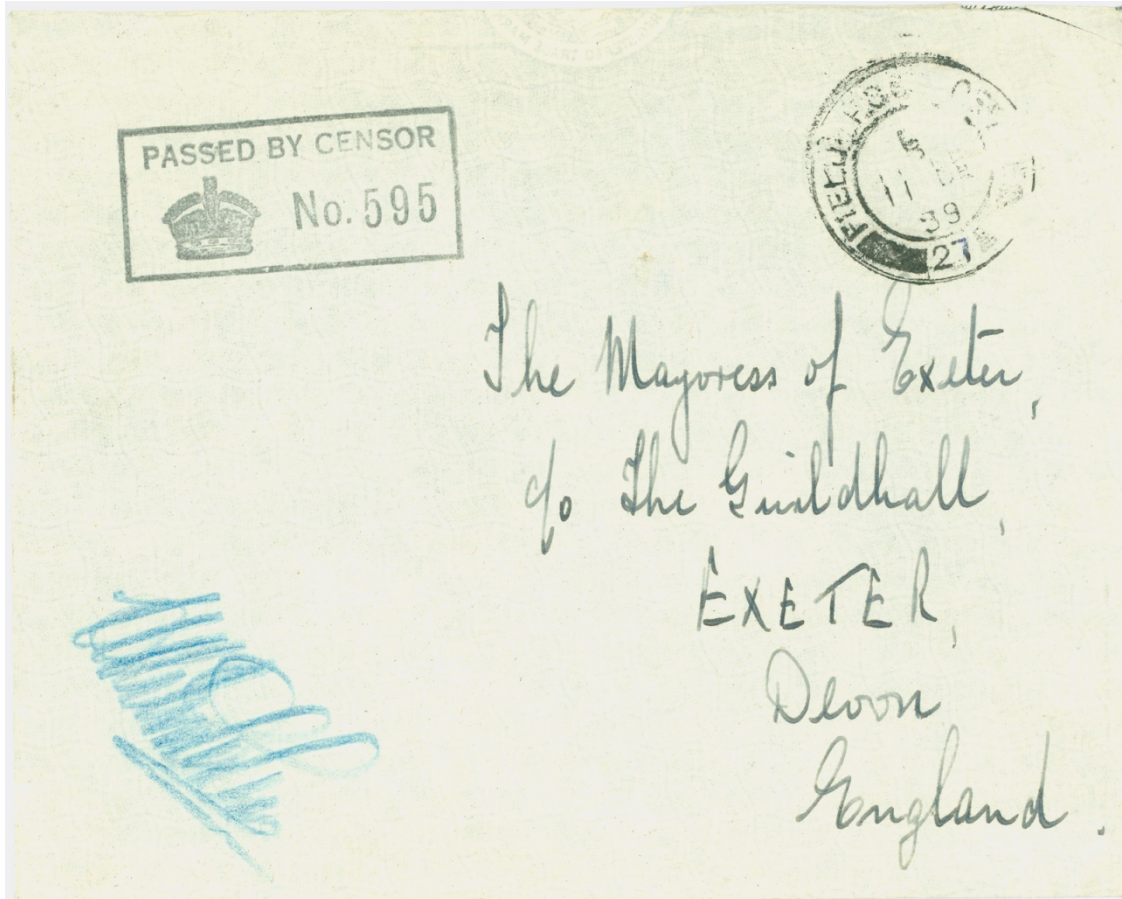 PASSED BY CENSOR
No. 595
FIELD POST
11 DE
39
27
The Mayoress of Exeter,
c/o The Guildhall,
EXETER,
Devon
England.